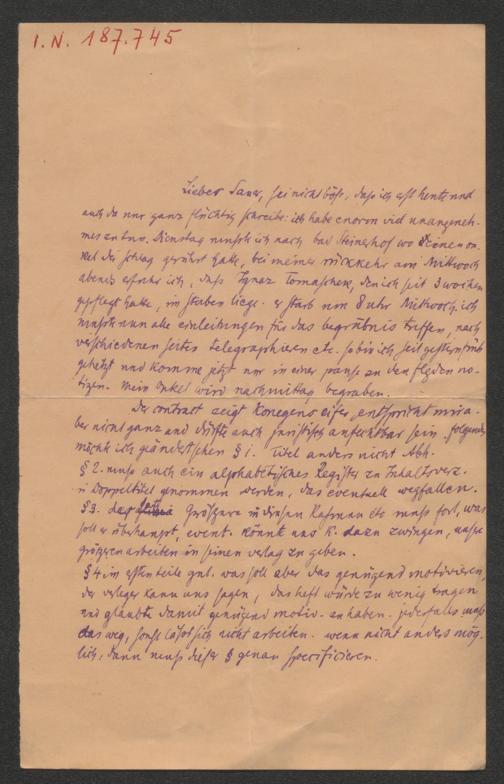 I. N. 187.745
Lieber Sauer, sei nicht böse, daß ich erst heute und
auch da nur ganz flüchtig schreibe: ich habe enorm viel unangeneh-
mes zu tun. Dienstag mußte ich nach bad Steinerhof wo meinen on-
kel der schlag gerührt hatte, bei meiner rückkehr am Mittwoch
abends erfuhr ich, daß Ignaz Tomaschek, den ich seit 3 wochen
gepflegt hatte, im sterben liege. er starb um 8 uhr Mittwoch. ich
mußte nun alle einleitungen für das begräbnis treffen, nach
verschiedenen seiten telegraphieren etc. so bin ich seit gestern früh
gehetzt und komme jetzt nur in einer pause zu den
tizen. mein onkel wird nachmittag begraben.
Der contract zeigt Konegens eifer, entspricht mir a-
ber nicht ganz und dürfte auch juristisch anfechtbar sein. folgendes
möcht ich geändert sehen § 1. Titel anders nicht Abh.
§ 2. muß auch ein alphabetisches Register zu Inhaltsverz.
u Doppeltitel genommen werden, das eventuell wegfallen.
§ 3. das größere in diesem muß fort, was
soll es überhaupt, event. könnt uns K. dazu zwingen, unsere
größeren arbeiten in seinen verlag zu geben.
§ 4 im ersten teile gut. was soll aber das genügend motivieren,
der verleger kann uns sagen, das heft würde zu wenig tragen
und glaubte damit genügend motiv. zu haben. jedesfalls muß
das weg, sonst läßt sich nicht arbeiten. wenn nicht anders mög-
lich, dann muß dieser § genau specificieren.